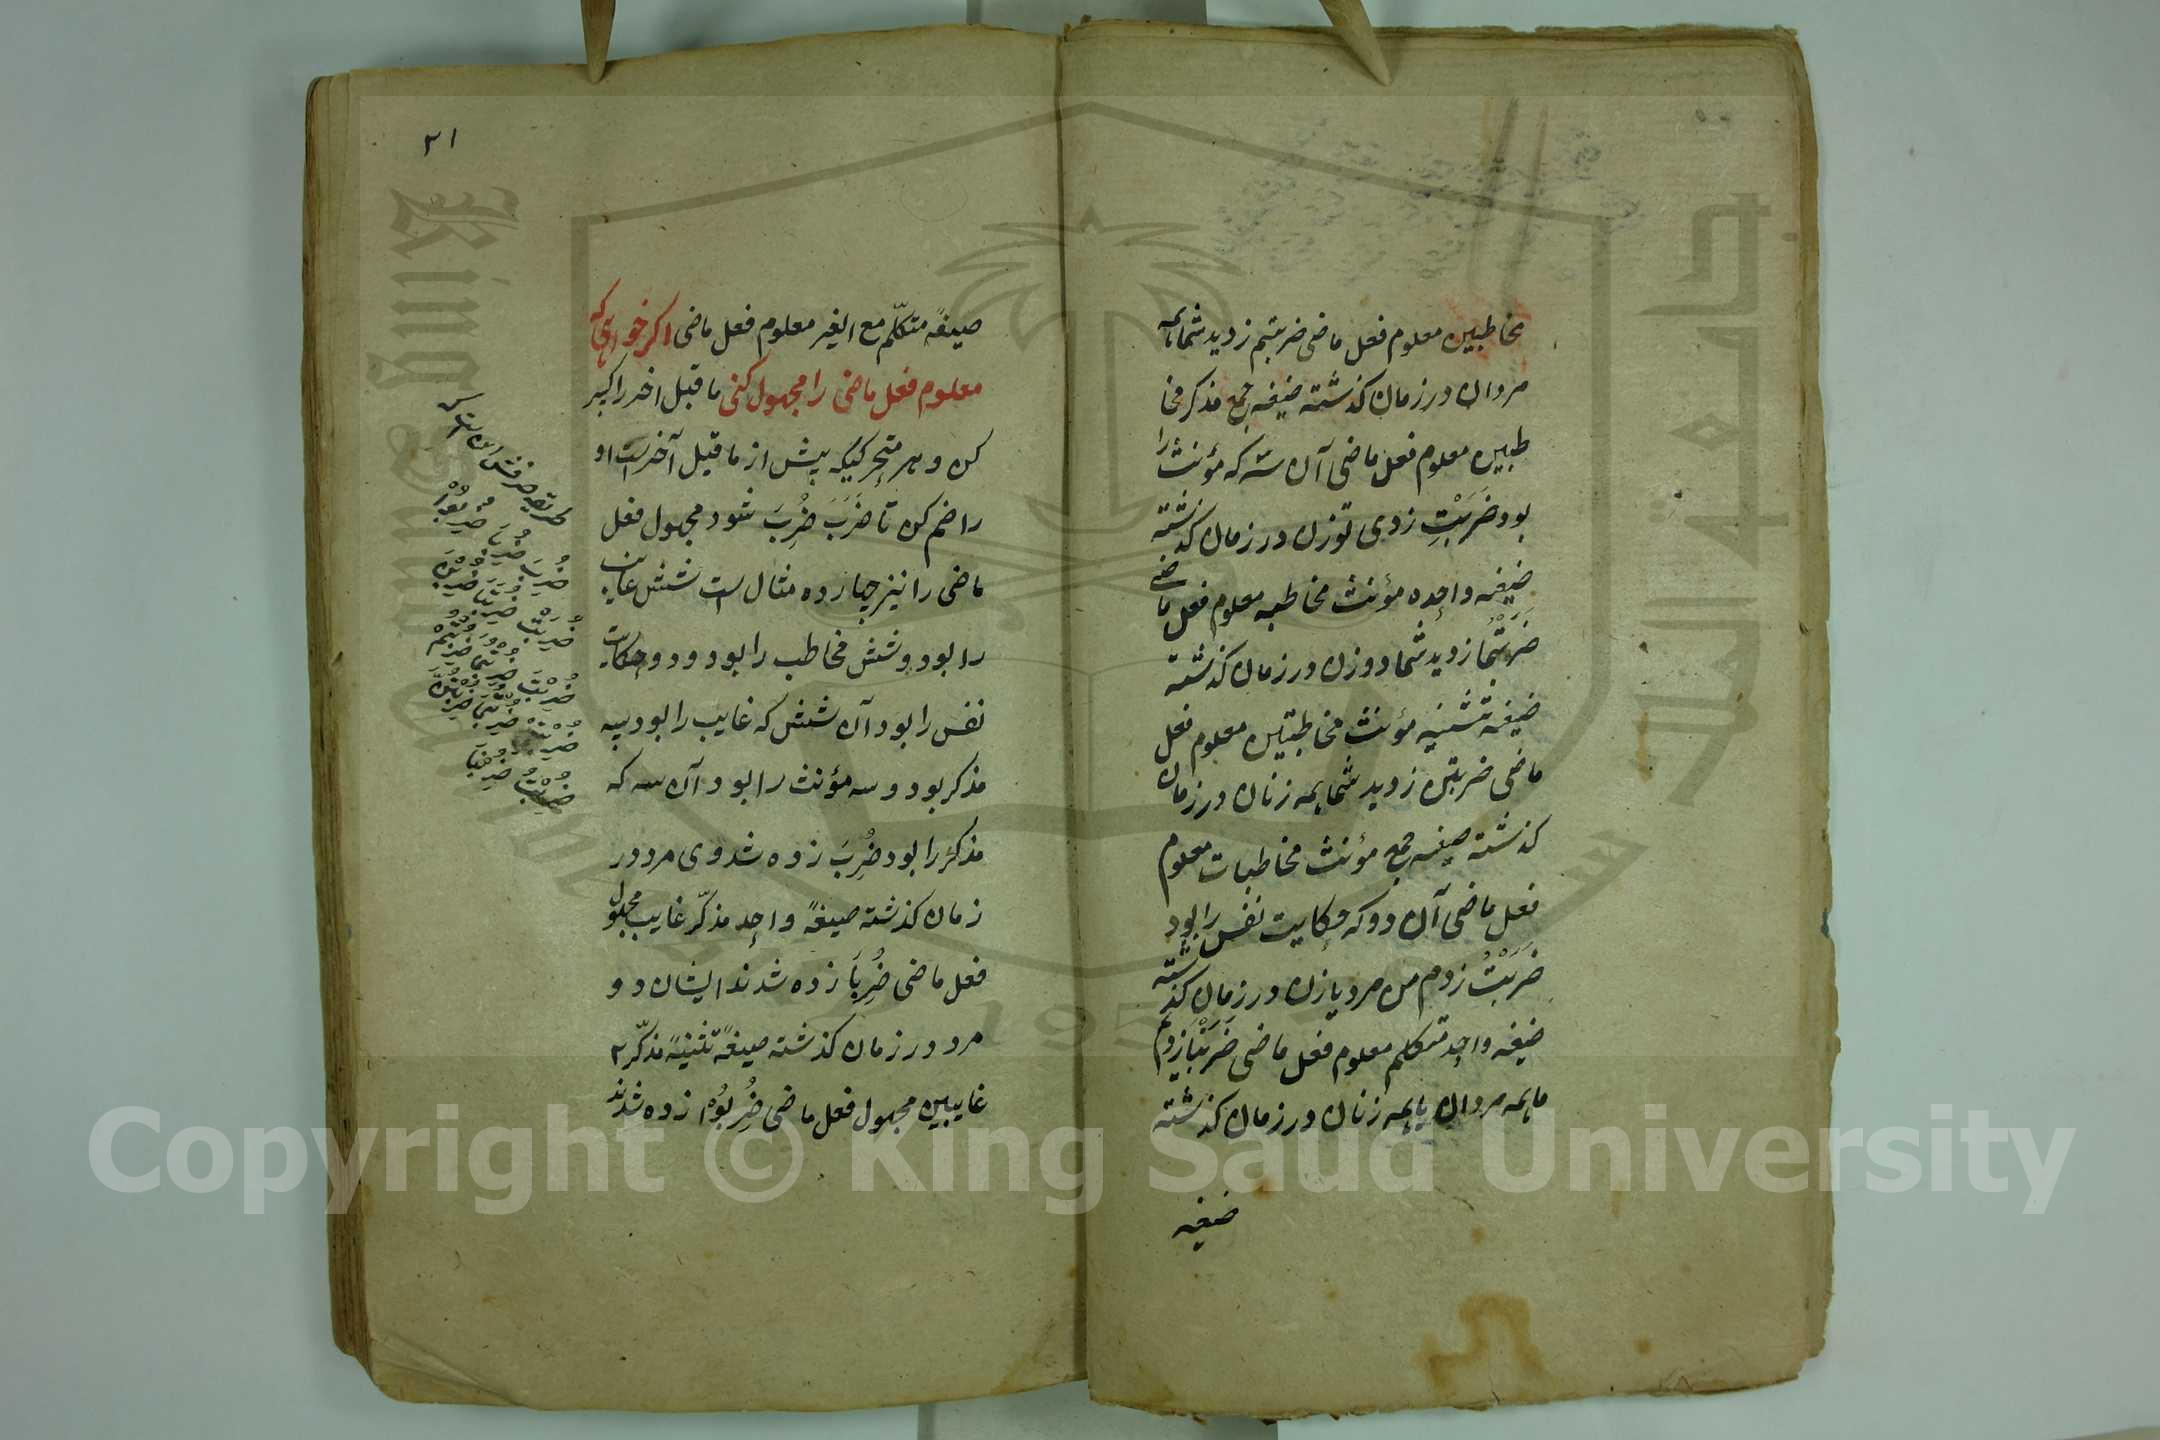 مخاطبین معلوم فعل ماضی ضربتم زدید شما همه
مردان در زمان کذشته ضیغه جمع مذکر مخا
طبین معلوم فعل ماضی آن سه که مؤنث را
بود ضَرَبْتِ زدی تو زن در زمان کذشته
ضیغه واحده مؤنث مخاطبه معلوم فعل ماضی
ضَرَبْتُمَا زدید شما دو زن در زمان کذشته
ضیغه تثنیه مؤنث مخاطبتین معلوم فعل
ماضی ضربتن زدید شما همه زنان در زمان
کذشته صیغه جمع مؤنث مخاطبات معلوم
فعل ماضی آن دو که حکایت نفس را بود
ضَرَبْتُ زدم من مرد یا زن در زمان کذشته
ضیغه واحد متکلم معلوم فعل ماضی ضَرَبْنَا زدیم
ما همه مردان یا همه زنان در زمان کذشته
ضیغه
۲۱
صیغهٔ متکلّم مع الغیر معلوم فعل ماضی اکر خواهی که
معلوم فعل ماضی را مجهول کنی ماقبل اخر را کسر
کن و هر متحرکیکه پیش از ماقبل آخر است او
را ضم کن تا ضَرَبَ ضُرِبَ شود مجهول فعل
ماضی را نیز چهارده مثال است شش غایب
را بود و شش مخاطب را بود و دو حکایت
نفس را بود آن شش که غایب را بود سه
مذکر بود و سه مؤنث را بود آن سه که
مذکر را بود ضُرِبَ زده شد وی مرد در
زمان کذشته صیغهٔ واحد مذکّر غایب مجهول
فعل ماضی ضُرِبَا زده شدند ایشان دو
مرد در زمان کذشته صیغهٔ تثنیهٔ مذکّر ۲
غایبین مجهول فعل ماضی ضُرِبُوْا زده شدند
ضُرِبَ ضُرِبَا ضُرِبُوْا
ضُرِبَتْ ضُرِبَتَا ضُرِبْنَ
ضُرِبْتَ ضُرِبْتُمَا ضُرِبْتُمْ
ضُرِبْتِ ضُرِبْتُمَا ضُرِبْتُنَّ
ضُرِبْتُ ضُرِبْنَا
Copyright © King Saud University